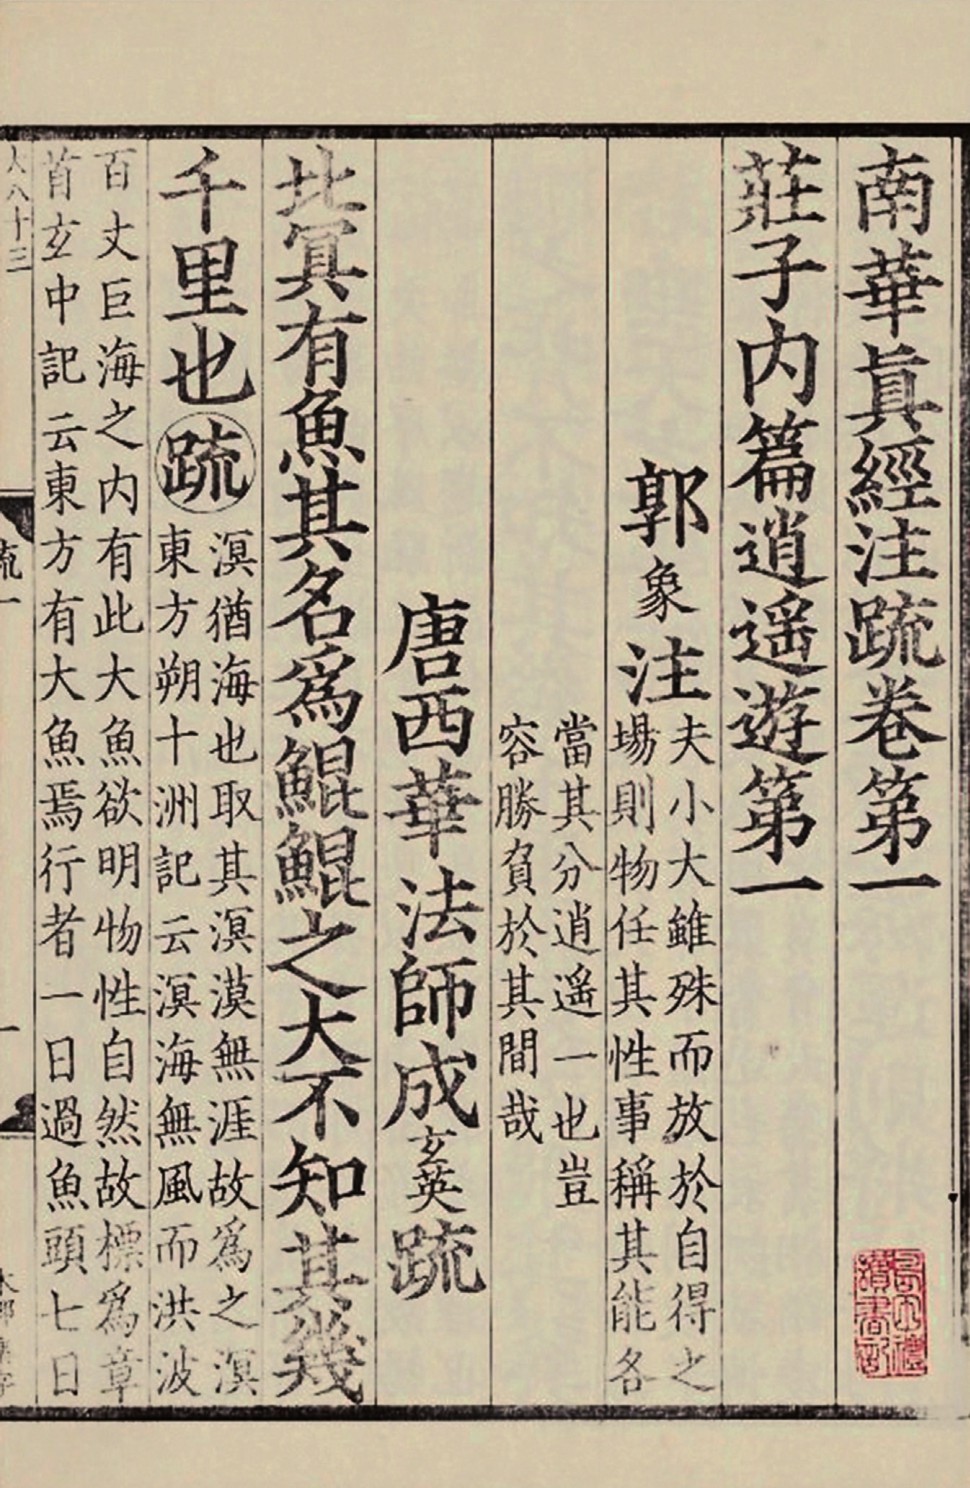 南華眞經注䟽卷第一
莊子内篇逍遥遊第一
郭象注
夫小大雖殊而放於自得之
塲則物任其性事稱其能各
當其分逍遥一也豈
容勝負於其間哉
唐西華法師成玄英䟽
北冥有魚其名爲鯤鯤之大不知其幾
千里也䟽
溟猶海也取其溟漠無涯故爲之溟
東方朔十洲記云溟海無風而洪波
百丈巨海之内有此大魚欲明物性自然故標爲章
首玄中記云東方有大魚焉行者一日過魚頭七日